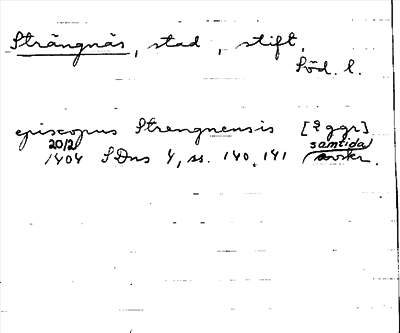 Strängnäs, stad, stift,
Söd. l.
episcopus Strengnensis [2 ggr]
20/2 samtida
1404 SDns 1, ss. 140, 141 avskr.